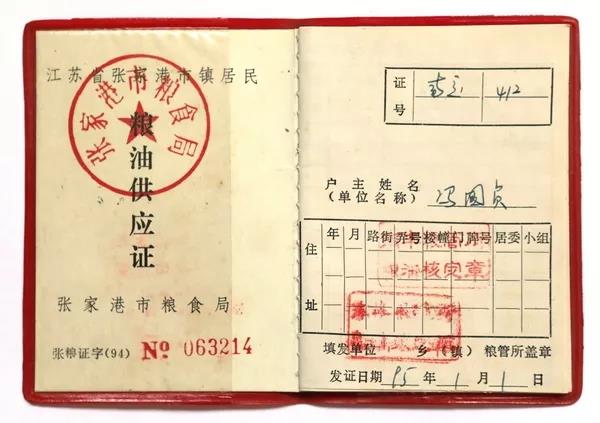 江苏省张家港市镇居民
张家港市粮食局
粮油供应证
张家港市粮食局
张粮证字(94) Nº 063214
证号 412
户主姓名
(单位名称) 冯国贞
住址
年 月 路街 弄号 楼幢 门牌号 居委 小组
核定章
填发单位 乡(镇)粮管所盖章
发证日期 95 年 1 月 1 日